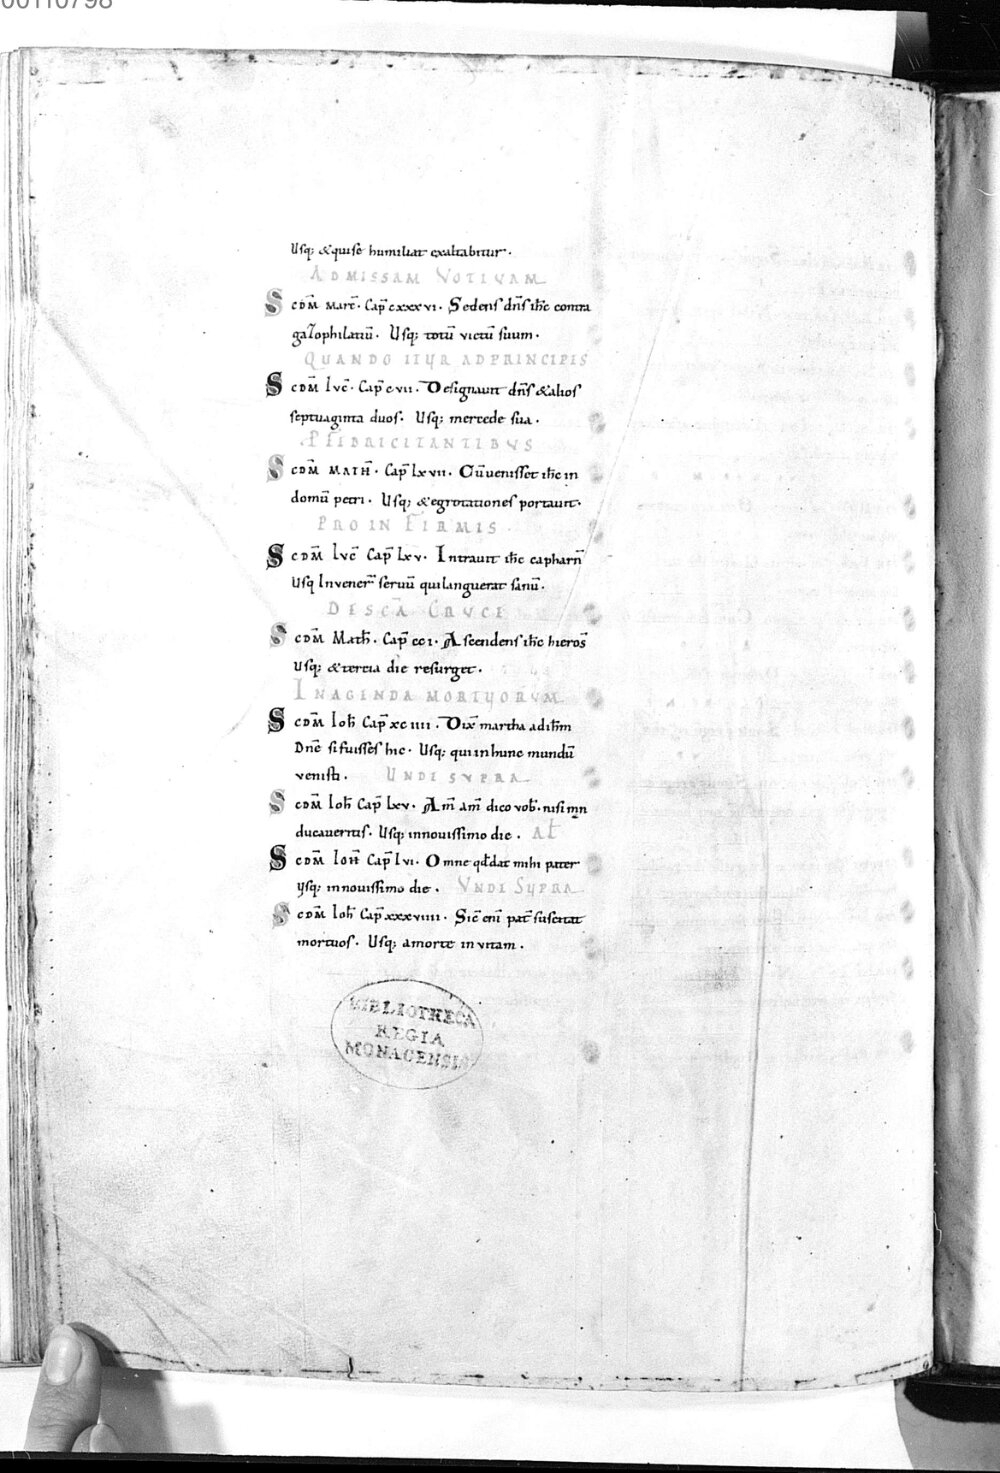 00110798
Usq; &quise humiliat exaltabitur.
ADMISSAM VOTIVAM
SCDM MARC̄. Cap̄ cxxxvi. Sedens dn̄s ih̄c contra
gazophilatiū. Usq; totū victū suum.
QUANDO ITUR ADPRINCIPIS
SCDM̄ LVC̄. Cap̄ cvii. Designauit dn̄s &alios
septuaginta duos. Usq; mercede sua.
FEBRICITANTIBVS
SCDM̄ MATH̄. Cap̄ lxvii. Cūuenisset ih̄c in
domū petri. Usq; &egrotationes portauit.
PRO INFIRMIS.
SCDM̄ LVC̄ Cap̄ lxv. Intrauit ih̄c capharn̄
Usq Inuener̄ seruū quilanguerat sanū.
DESCĀ CRVCE
SCDM̄ Math̄. Cap̄ cci. Ascendens ih̄c hieros̄
Usq; &tertia die resurget.
INAGENDA MORTVORVM
SCDM̄ Ioh̄ Cap̄ xciiii. Dix̄ martha adih̄m
Dn̄e sifuisses hic. Usq; quiinhunc mundū
venisti. UNDE SVPRA
SCDM̄ Ioh̄ Cap̄ lxv. Am̄ am̄ dico vob̄. nisi mn
ducaueritis. Usq; innouissimo die. AL̄
SCDM̄ IOH̄ Cap̄ lvi. Omne qd̄dat mihi pater
Usq; innouissimo die. VNDE SVPRA
SCDM̄ Ioh̄ Cap̄ xxxviiii. Sic̄ eni pat̄ suscitat
mortuos. Usq; amorte invitam.
BIBLIOTHECA
REGIA
MONACENSIS